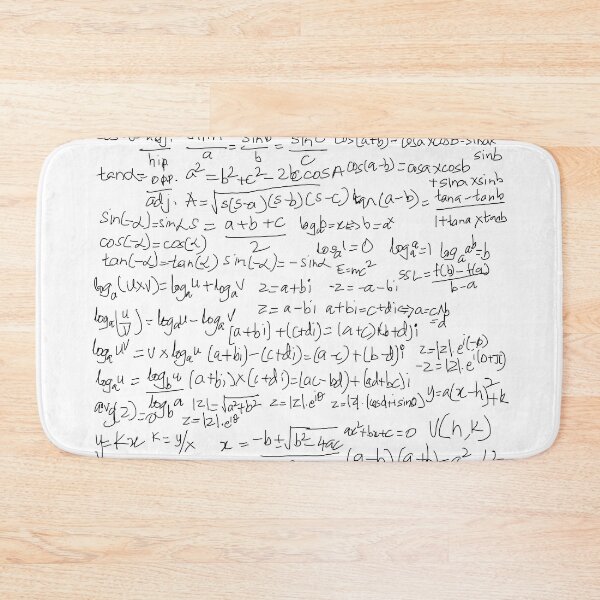 sinA/a = sinB/b = sinC/c cos(a+b)=cosaxcosb-sinax sinb
hip
tanα= opp./adj. a²=b²+c²-2bccosA cos(a-b)=cosaxcosb +sinaxsinb
A=√s(s-a)(s-b)(s-c) tan(a-b)= tana-tanb/1+tanaxtanb
sin(-α)=sinα S = a+b+c/2 logₐb=x⇔b=aˣ
cos(-α)=cos(α) logₐ1=0 logₐa=1 logₐaᵇ=b
tan(-α)=-tan(α) sin(-α)=-sinα E=mc² SSL=f(b)-f(a)/b-a
logₐ(uxv)=logₐu+logₐv z=a+bi -z=-a-bi
z=a-bi a+bi=c+di⇔a=c∧b=d
logₐ(u/v)=logₐu-logₐv (a+bi)+(c+di)=(a+c)(b+d)i
logₐuᵛ=v×logₐu (a+bi)-(c+di)=(a-c)+(b-d)i z=|z|.e^i(-θ)
-z=|z|.e^i(θ+π)
logₐu=log_b u/log_b a (a+bi)×(c+di)=(ac-bd)+(ad+bc)i
arg(z)=θ |z|=√a²+b² z=|z|.e^iθ z=|z|.(cosθ+isinθ) y=a(x-h)²+k
z=|z|.e^iθ
y=kx k=y/x x=-b±√b²-4ac ax²+bx+c=0 V(h,k)
(a-b)(a+b)=a²